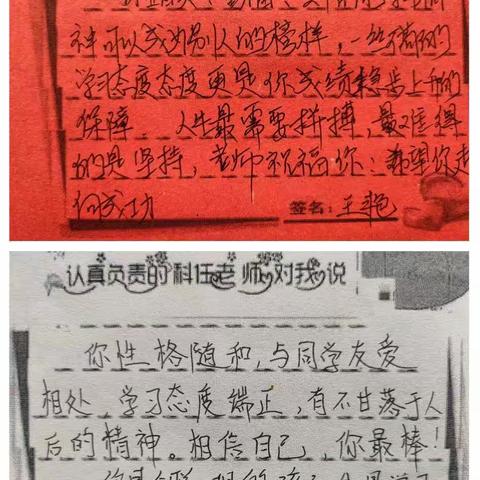 神可以成为别人的榜样，一丝不苟的
学习态度态度更是你成绩稳步上升的
保障。人生最需要拼搏，最难得
的是坚持，老师祝福你：希望你走
向成功
签名：王艳
认真负责的科任老师对我说
你性格随和，与同学友爱
相处，学习态度端正，有不甘落于人
后的精神。相信自己，你最棒！